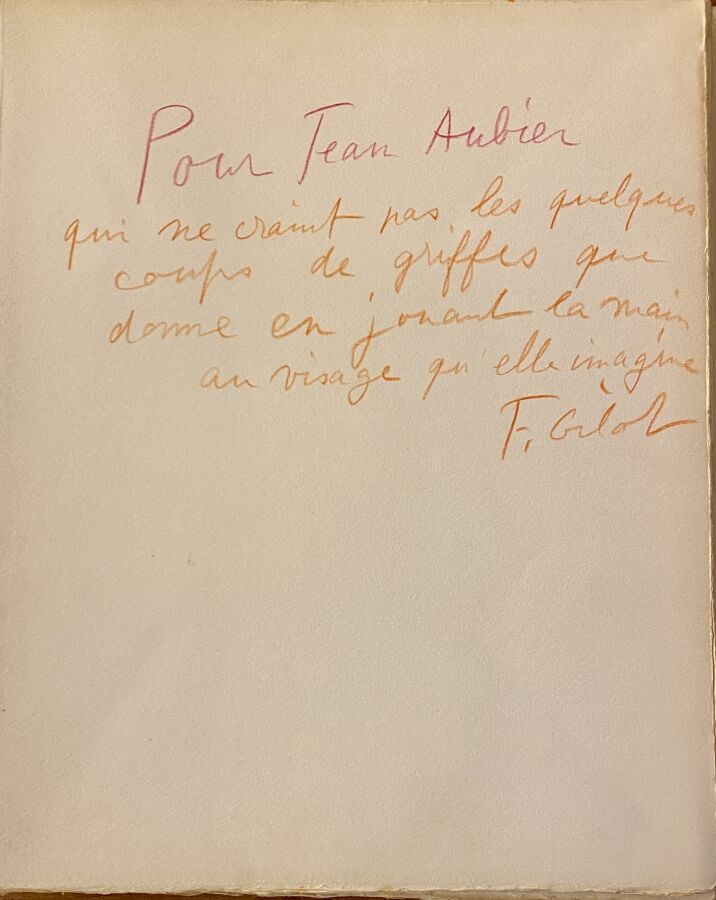 Pour Jean Aubier
qui ne craint pas les quelques
coups de griffes que
donne en jouant la main
au visage qu'elle imagine
F. Gilot